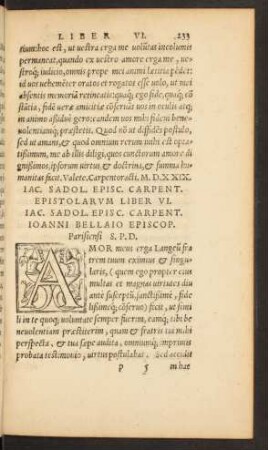 LIBER VI. 233
tium: hoc est, ut uestra erga me volũtas incolumis
permaneat, quando ex uestro amore erga me, ue-
stroq; iudicio, omnis prope mei animi lætitia pẽdet:
id uos uehemẽter oratos et rogatos esse uolo, ut mei
absentis memoriã retineatis: quoq; ego fide, quaq; cõ
stãtia, fidẽ ueræ amicitiæ cõseruo uos in oculis atq;
in animo assiduò gero: eandem uos mihi fidem bene-
uolentiamq; præstetis. Quod nõ ut diffidẽs postulo,
sed ut amans, & quod omnium rerum mihi est opta-
tissimum, me ab illis diligi, quos cunctorum amore di
gnissimos, ipsorum uirtus, & doctrina, & summa hu-
manitas fecit. Valete. Carpentoracti, M.D.XXIX.
IAC. SADOL. EPISC. CARPENT.
EPISTOLARVM LIBER VI.
IAC. SADOL. EPISC. CARPENT.
IOANNI BELLAIO EPISCOP.
Parisiensi S.P.D.
AMOR meus erga Langeũ fra
trem tuum eximius & singu-
laris, (quem ego propter eius
multas et magnas uirtutes diu
antè susceptũ, sanctissimè, fide
lissimeq; cõseruo) fecit, ut simi
li in te quoq; uoluntate semper fuerim, eamq; tibi be
neuolentiam præstiterim, quam & fratris tui mihi
perspecta, & tua sæpe audita, omniumq; inprimis
probata testimonio, uirtus postulabat. Sed accidit
P 5 in hac